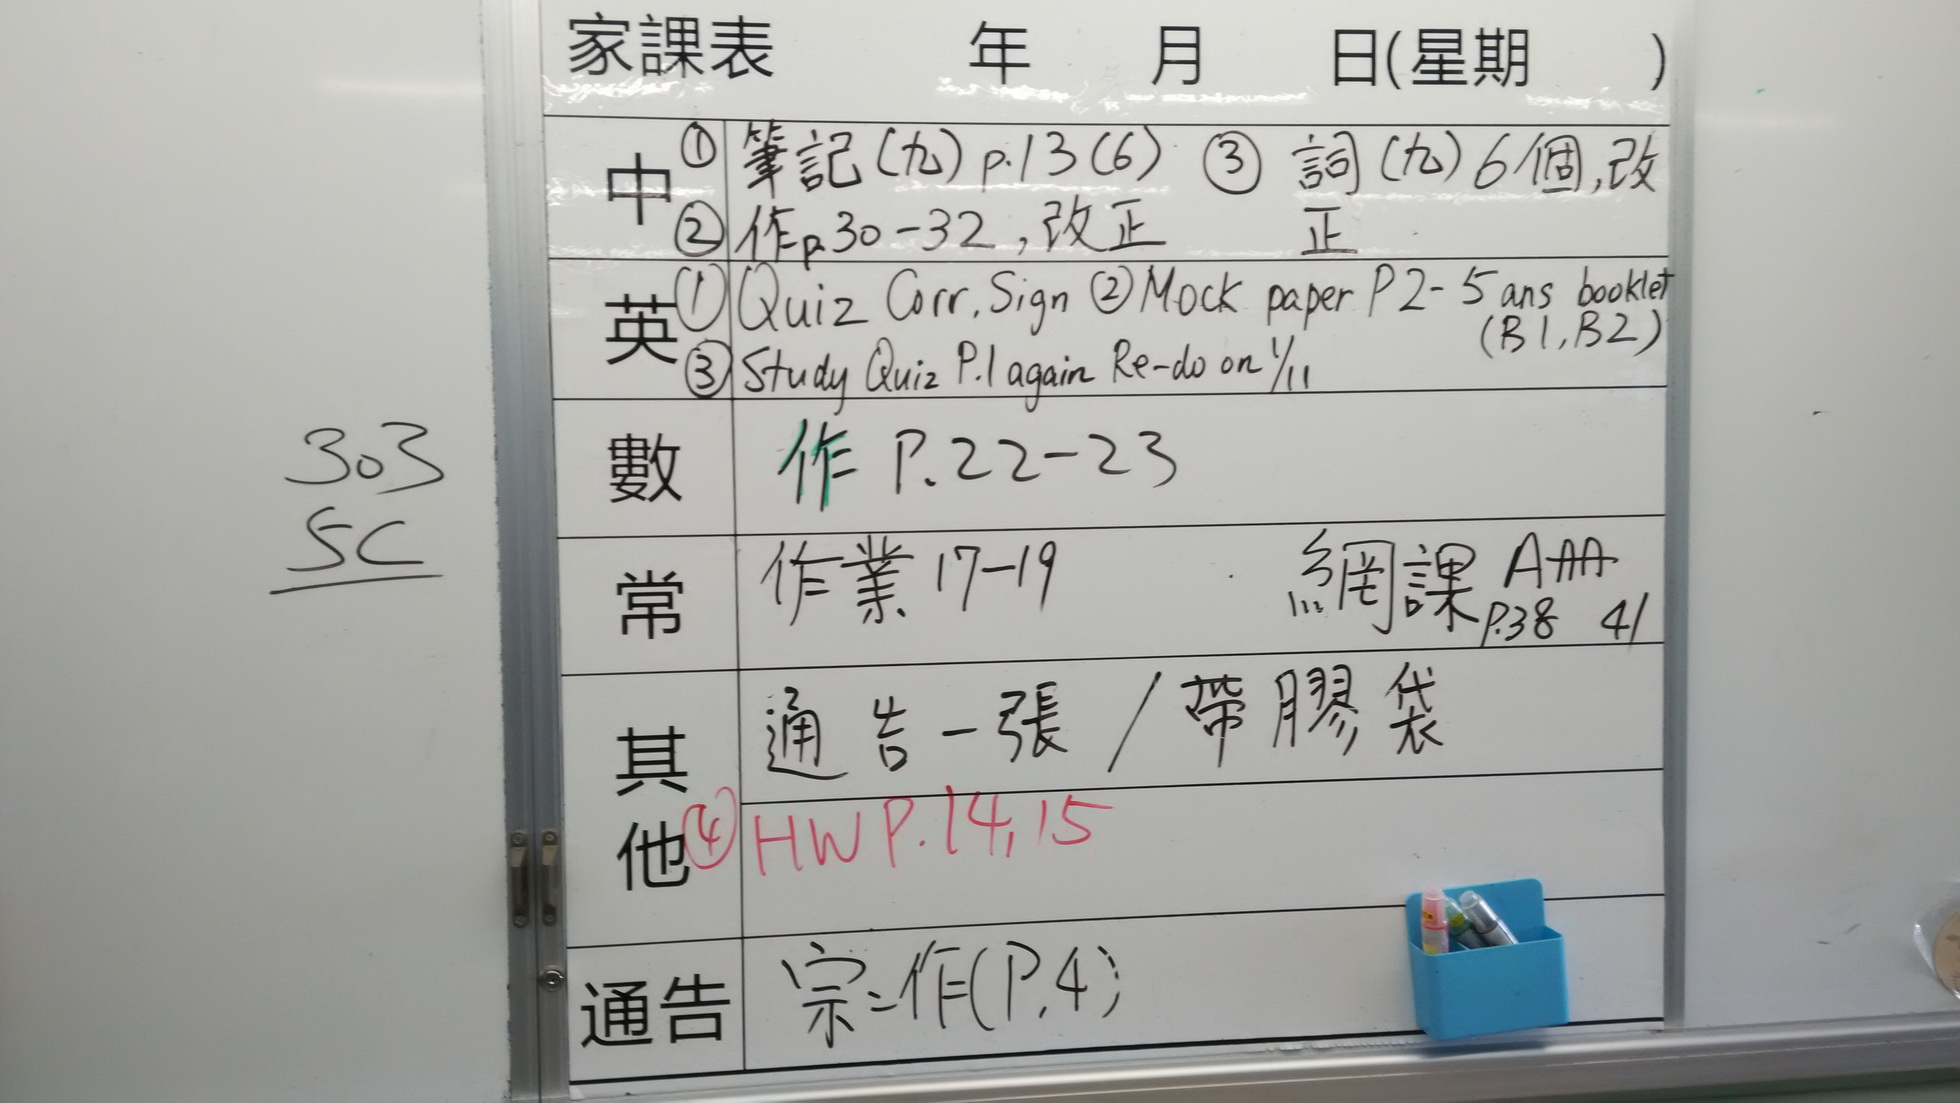 家課表 年 月 日(星期 )
中 ① 筆記(九) p.13(6) ③ 詞(九) 6個,改
② 作p.30-32,改正 正
英 ① Quiz Corr. Sign ② Mock paper P2-5 ans booklet
(B1,B2)
③ Study Quiz P.1 again Re-do on 1/11
數 作 P.22-23
303
5C
常 作業 17-19 網課
P.38 41
其他 通告一張 / 帶膠袋
④ HW P.14,15
通告 宗=作(P.4)